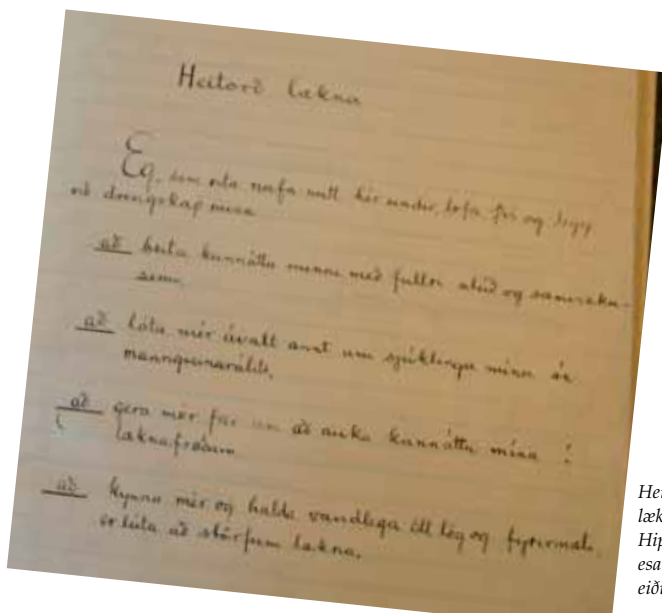 Heitorð lækna
Eg, sem rita nafn mitt hér undir, lofa því og legg
við drengskap minn
að beita kunnáttu minni með fullri alúð og samvizku-
semi,
að láta mér ávalt annt um sjúklinga mína án
manngreinarálits,
að gera mér far um að auka kunnáttu mína í
læknafræðum
að kynna mér og halda vandlega öll lög og fyrirmæli,
er lúta að störfum lækna.
Hei
læk
Hip
esa
eiði